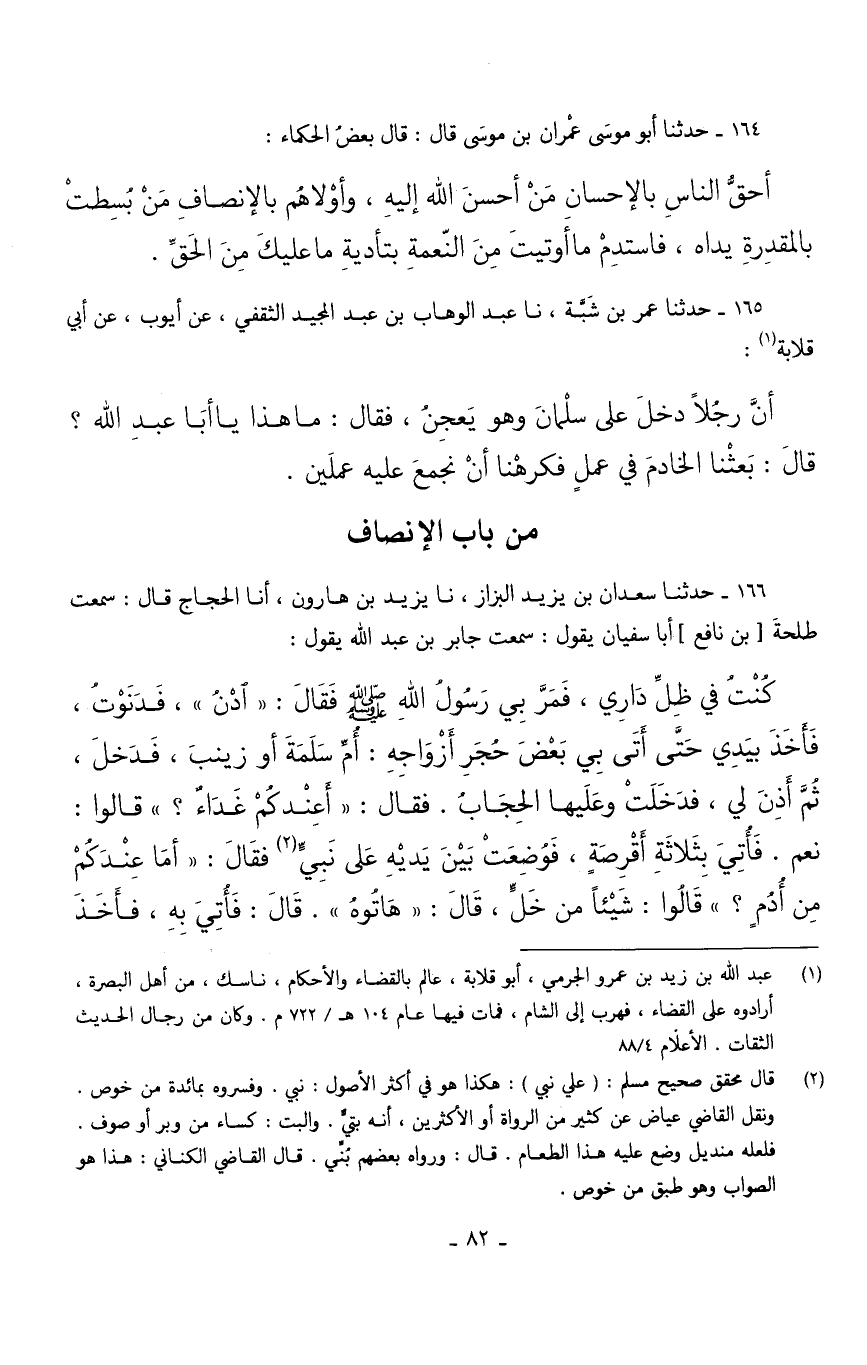 ١٦٤ ـ حدثنا أبو موسَى عمْران بن موسَى قال : قال بعضُ الحكماء :
أحقُّ الناسِ بالإحسانِ مَنْ أحسنَ الله إليهِ ، وأوْلاهُم بالإنصافِ مَنْ بُسِطتْ
بالمقدِرةِ يداه ، فاستدِمْ ماأوتيتَ مِنَ النّعمةِ بتأديةِ ماعليكَ مِنَ الحَقِّ .
١٦٥ ـ حدثنا عمر بن شَبَّة ، نا عبد الوهاب بن عبد المجيد الثقفي ، عن أيوب ، عن أبي
قلابة(١) :
أنَّ رجُلاً دخلَ على سلْمانَ وهو يَعجِنُ ، فقال : ماهذا ياأبَا عبدِ الله ؟
قالَ : بَعثْنا الخادمَ في عملٍ فكرهْنا أنْ نجمعَ عليه عملَين .
من باب الإنصاف
١٦٦ ـ حدثنا سعدان بن يزيد البزاز ، نا يزيد بن هارون ، أنا الحجاج قال : سمعت
طلحةَ [ بن نافع ] أبا سفيان يقول : سمعت جابر بن عبد الله يقول :
كُنْتُ في ظِلِّ دَاري ، فَمَرَّ بي رَسُولُ اللهِ ﷺ فَقَالَ : « ٱدْنُ » ، فَدَنَوْتُ ،
فَأَخَذَ بيَدِي حَتَّى أَتَى بي بَعْضَ حُجَرِ أَزْوَاجِهِ : أُمِّ سَلَمَةَ أو زينبَ ، فَدَخلَ ،
ثُمَّ أَذِنَ لي ، فدَخَلَتْ وعَلَيها الحِجَابُ . فقال : « أَعِنْدكُمْ غَدَاءٌ ؟ » قالوا :
نعم . فَأُتِيَ بِثَلاثَةِ أَقْرِصَةٍ ، فَوُضِعَتْ بَيْنَ يَديْهِ عَلى نَبيٍّ(٢) فقَالَ : « أمَا عِنْدَكُمْ
مِن أُدُمٍ ؟ » قَالُوا : شَيْئاً من خَلٍّ ، قَالَ : « هَاتُوهُ » . قَالَ : فَأُتِيَ بِهِ ، فأَخَذَ
(١) عبد الله بن زيد بن عمرو الجرمي ، أبو قلابة ، عالم بالقضاء والأحكام ، ناسك ، من أهل البصرة ،
أرادوه على القضاء ، فهرب إلى الشام ، فمات فيها عام ١٠٤ هـ / ٧٢٢ م . وكان من رجال الحديث
الثقات . الأعلام ٨٨/٤
(٢) قال محقق صحيح مسلم : ( علي نبي ) : هكذا هو في أكثر الأصول : نبي . وفسروه بمائدة من خوص .
ونقل القاضي عياض عن كثير من الرواة أو الأكثرين ، أنه بتيٌّ . والبت : كساء من وبر أو صوف .
فلعله منديل وضع عليه هذا الطعام . قال : ورواه بعضهم بُنّي . قال القاضي الكناني : هذا هو
الصواب وهو طبق من خوص .
ـ ٨٢ ـ